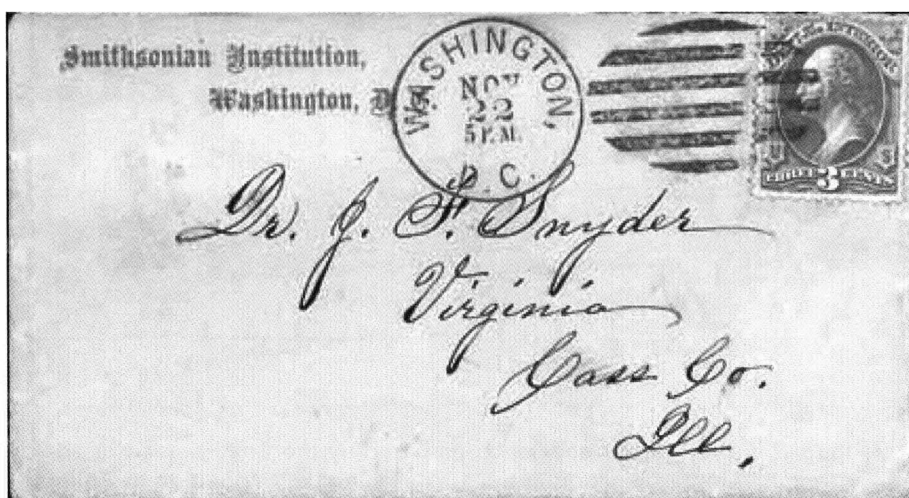 Smithsonian Institution,
Washington, D.C.
WASHINGTON,
NOV
22
5 P.M.
D.C.
U S
3
Dr. J. F. Snyder
Virginia
Cass Co.
Ill,